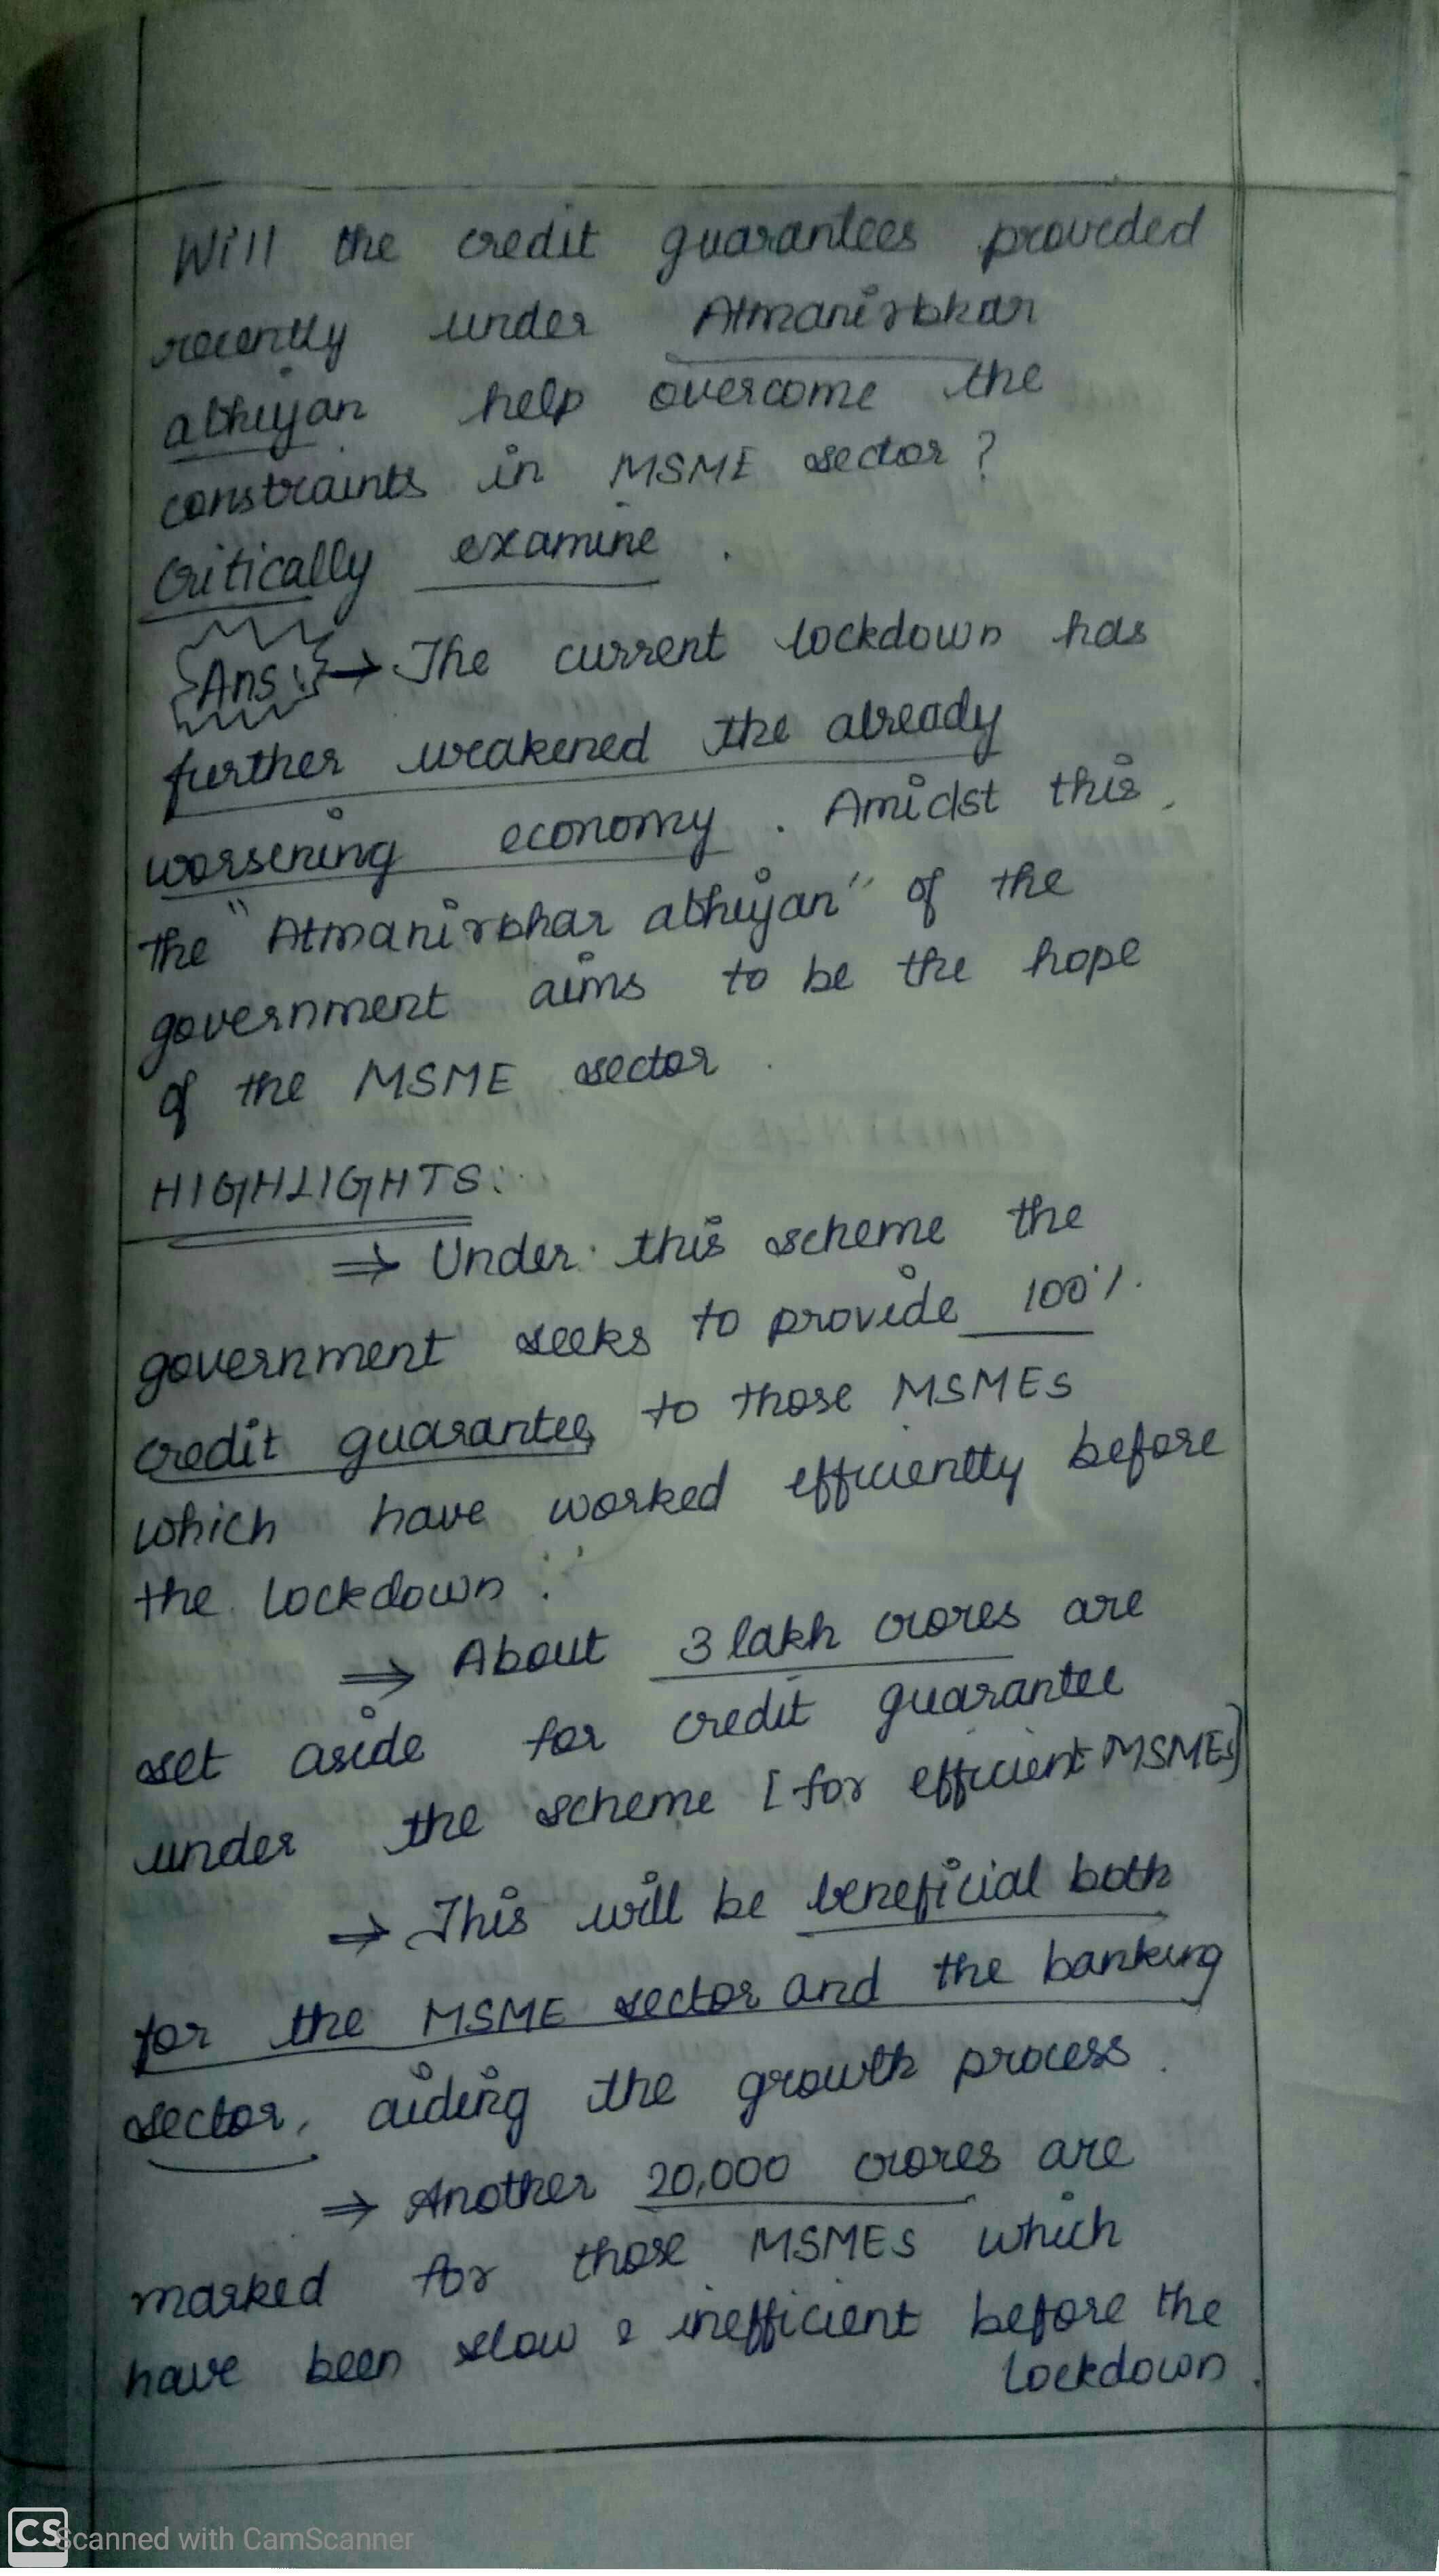 Will the credit guarantees provided
recently under Atmanirbhar
abhiyan help overcome the
constraints in MSME sector ?
Critically examine .
Ans :→ The current lockdown has
further weakened the already
worsening economy . Amidst this ,
the "Atmanirbhar abhiyan" of the
government aims to be the hope
of the MSME sector .
HIGHLIGHTS :
⇒ Under this scheme the
government seeks to provide 100%
credit guarantee to those MSMEs
which have worked efficiently before
the lockdown .
⇒ About 3 lakh crores are
set aside for credit guarantee
under the scheme [for efficient MSMEs]
⇒ This will be beneficial both
for the MSME sector and the banking
sector, aiding the growth process .
⇒ Another 20,000 crores are
marked for those MSMEs which
have been slow & inefficient before the
lockdown .
CS Scanned with CamScanner